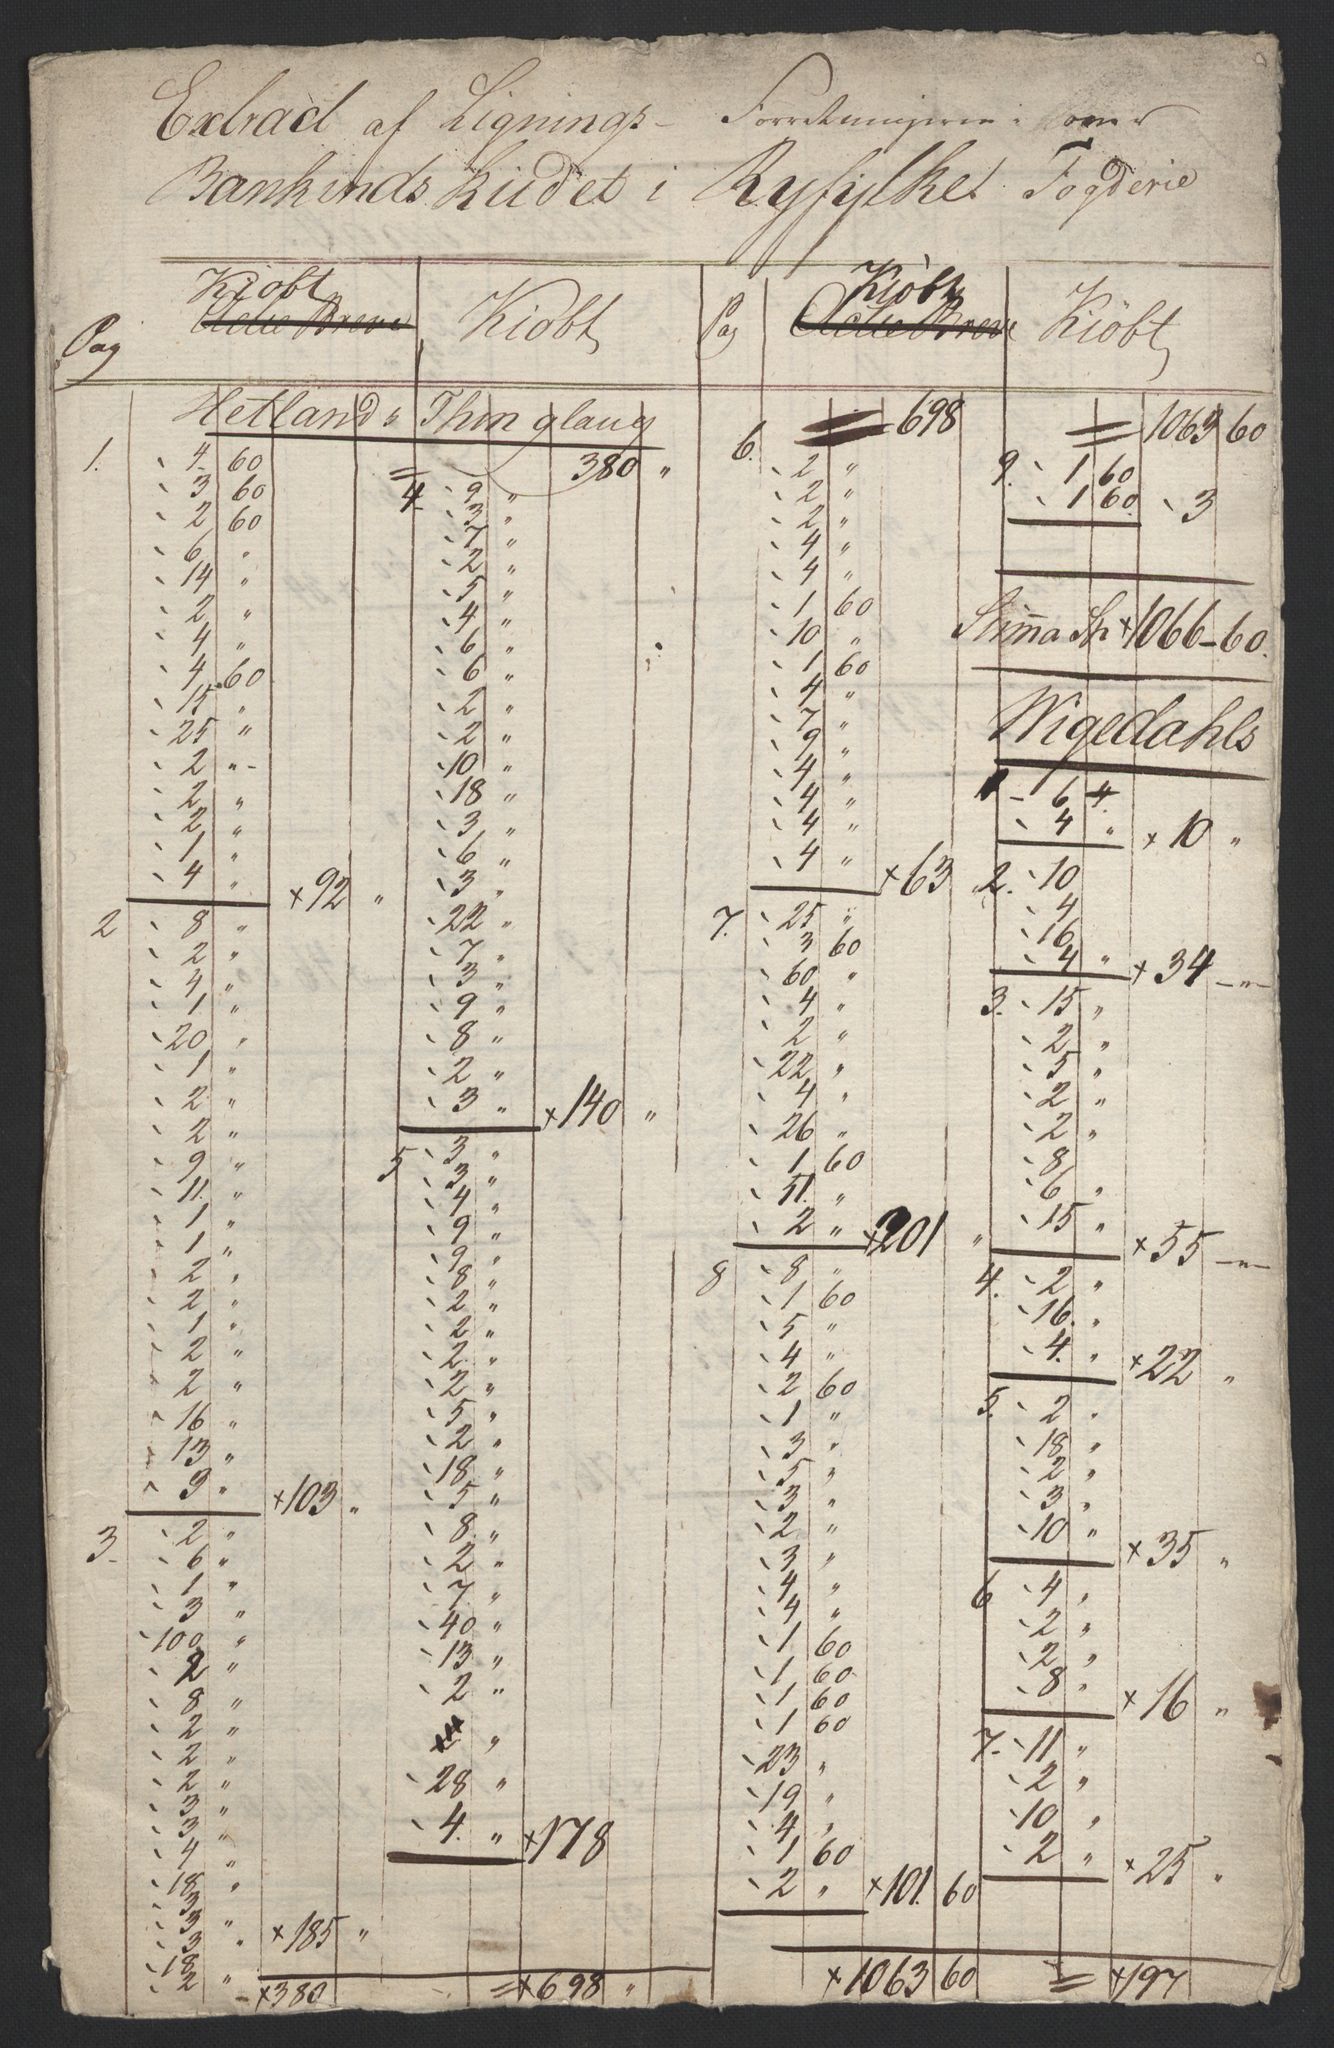 Extract af Lignings- Forretningerne
Bankindskudet i Ryfylket Fogderie
Pag
Kiöbt
Actie Breve
Kiöbt
Pag
Kiöbt
Actie Breve
Kiöbt
Hetlands Thinglaug
1. 4 60
3 60
2 60
6 "
14 "
2 "
4 "
4 60
15 "
25 "
2 "
2 "
2 "
1 "
4 " × 92 "
2 8 "
2 "
4 "
1 "
20 "
1 "
2 "
2 "
9 "
11 "
1 "
1 "
2 "
2 "
1 "
2 "
2 "
16 "
13 "
3 " × 103 "
3. 2 "
6 "
1 "
3 "
100 "
2 "
8 "
2 "
2 "
2 "
3 "
3 "
4 "
18 "
3
3 "
3 "
18
2 " × 185 "
× 380
= 380 "
4. 9 "
3 "
7 "
2 "
5 "
4 "
6 "
6 "
2 "
2 "
10 "
18 "
3 "
6 "
3 "
22 "
7 "
3 "
9 "
8 "
2 "
3 " × 140 "
5 3 "
3 "
4 "
9 "
9 "
8 "
2 "
2 "
2 "
2 "
5 "
2 "
18 "
5 "
8 "
2 "
7 "
40 "
13 "
2 "
"
28 "
4. " × 178
= × 698 "
= 698
6. 2 "
2 "
2 "
4 "
4 "
1 60
10 "
1 60
4 "
7 "
9 "
4 "
4 "
4 "
4 " × 63
7. 25 "
3 60
60 "
4 "
2 "
22 "
4 "
26 "
1 60
51. "
2 " × 201 "
8 8 "
1 60
5 "
4 "
2 60
1 "
3 "
5 "
3 "
2 "
3 "
4 "
4 "
1 60
1 60
1 60
1 60
23 "
19 "
4 "
1 60
2 " × 101. 60
× 1063 60
= 1063 60
9. 1 60
1 60. 3
Suma Sp × 1066-60.
Wigedahls
1 - 6 "
4 " × 10 "
2. 10
4
16
4 " × 34 -"-
3. 15 "
2 "
5 "
2 "
2 "
8
6 "
15 " × 55 -"-
4. 2 "
16. "
4. " × 22 "
5. 2 "
18 "
2 "
3 "
10 " × 35 "
6 4 "
2 "
2 "
8 " × 16 "
7. 11 "
2 "
10 "
2 " × 25 "
= × 197